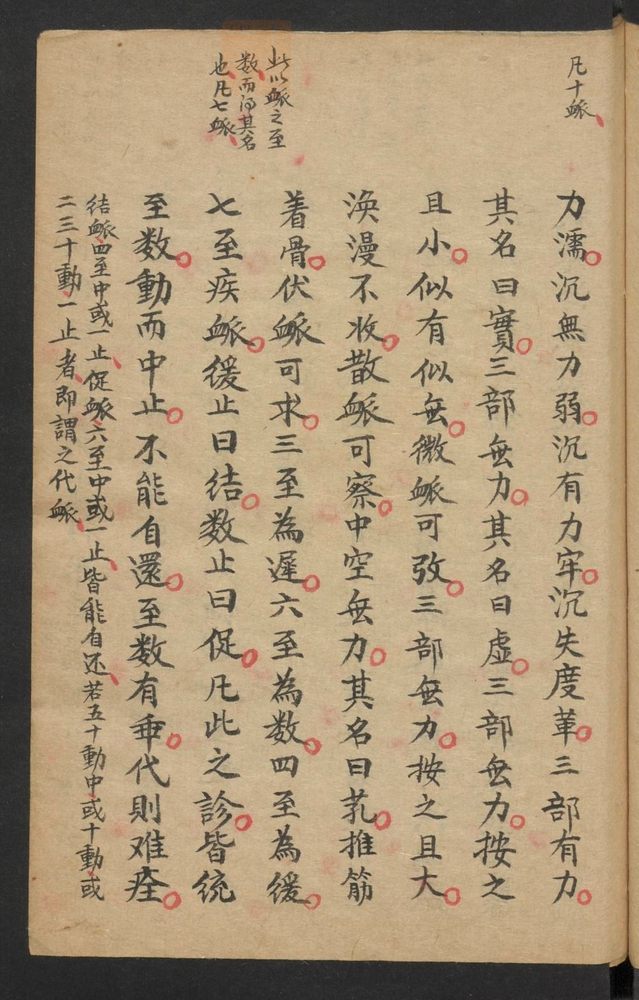 凡十脈
力濡沉無力弱沉有力牢沉失度革三部有力
其名曰實三部無力其名曰虛三部無力按之
且小似有似無微脈可攷三部無力按之且大
渙漫不收散脈可察中空無力其名曰芤推筋
着骨伏脈可求三至為遲六至為数四至為緩
七至疾脈緩止曰结数止曰促凡此之診皆统
至数動而中止不能自還至数有乖代則难痊
此以脈之至
数而得其名
也凡七脈
结脈四至中或一止促脈六至中或一止皆能自还若五十動中或十動或
二三十動一止者即謂之代脈